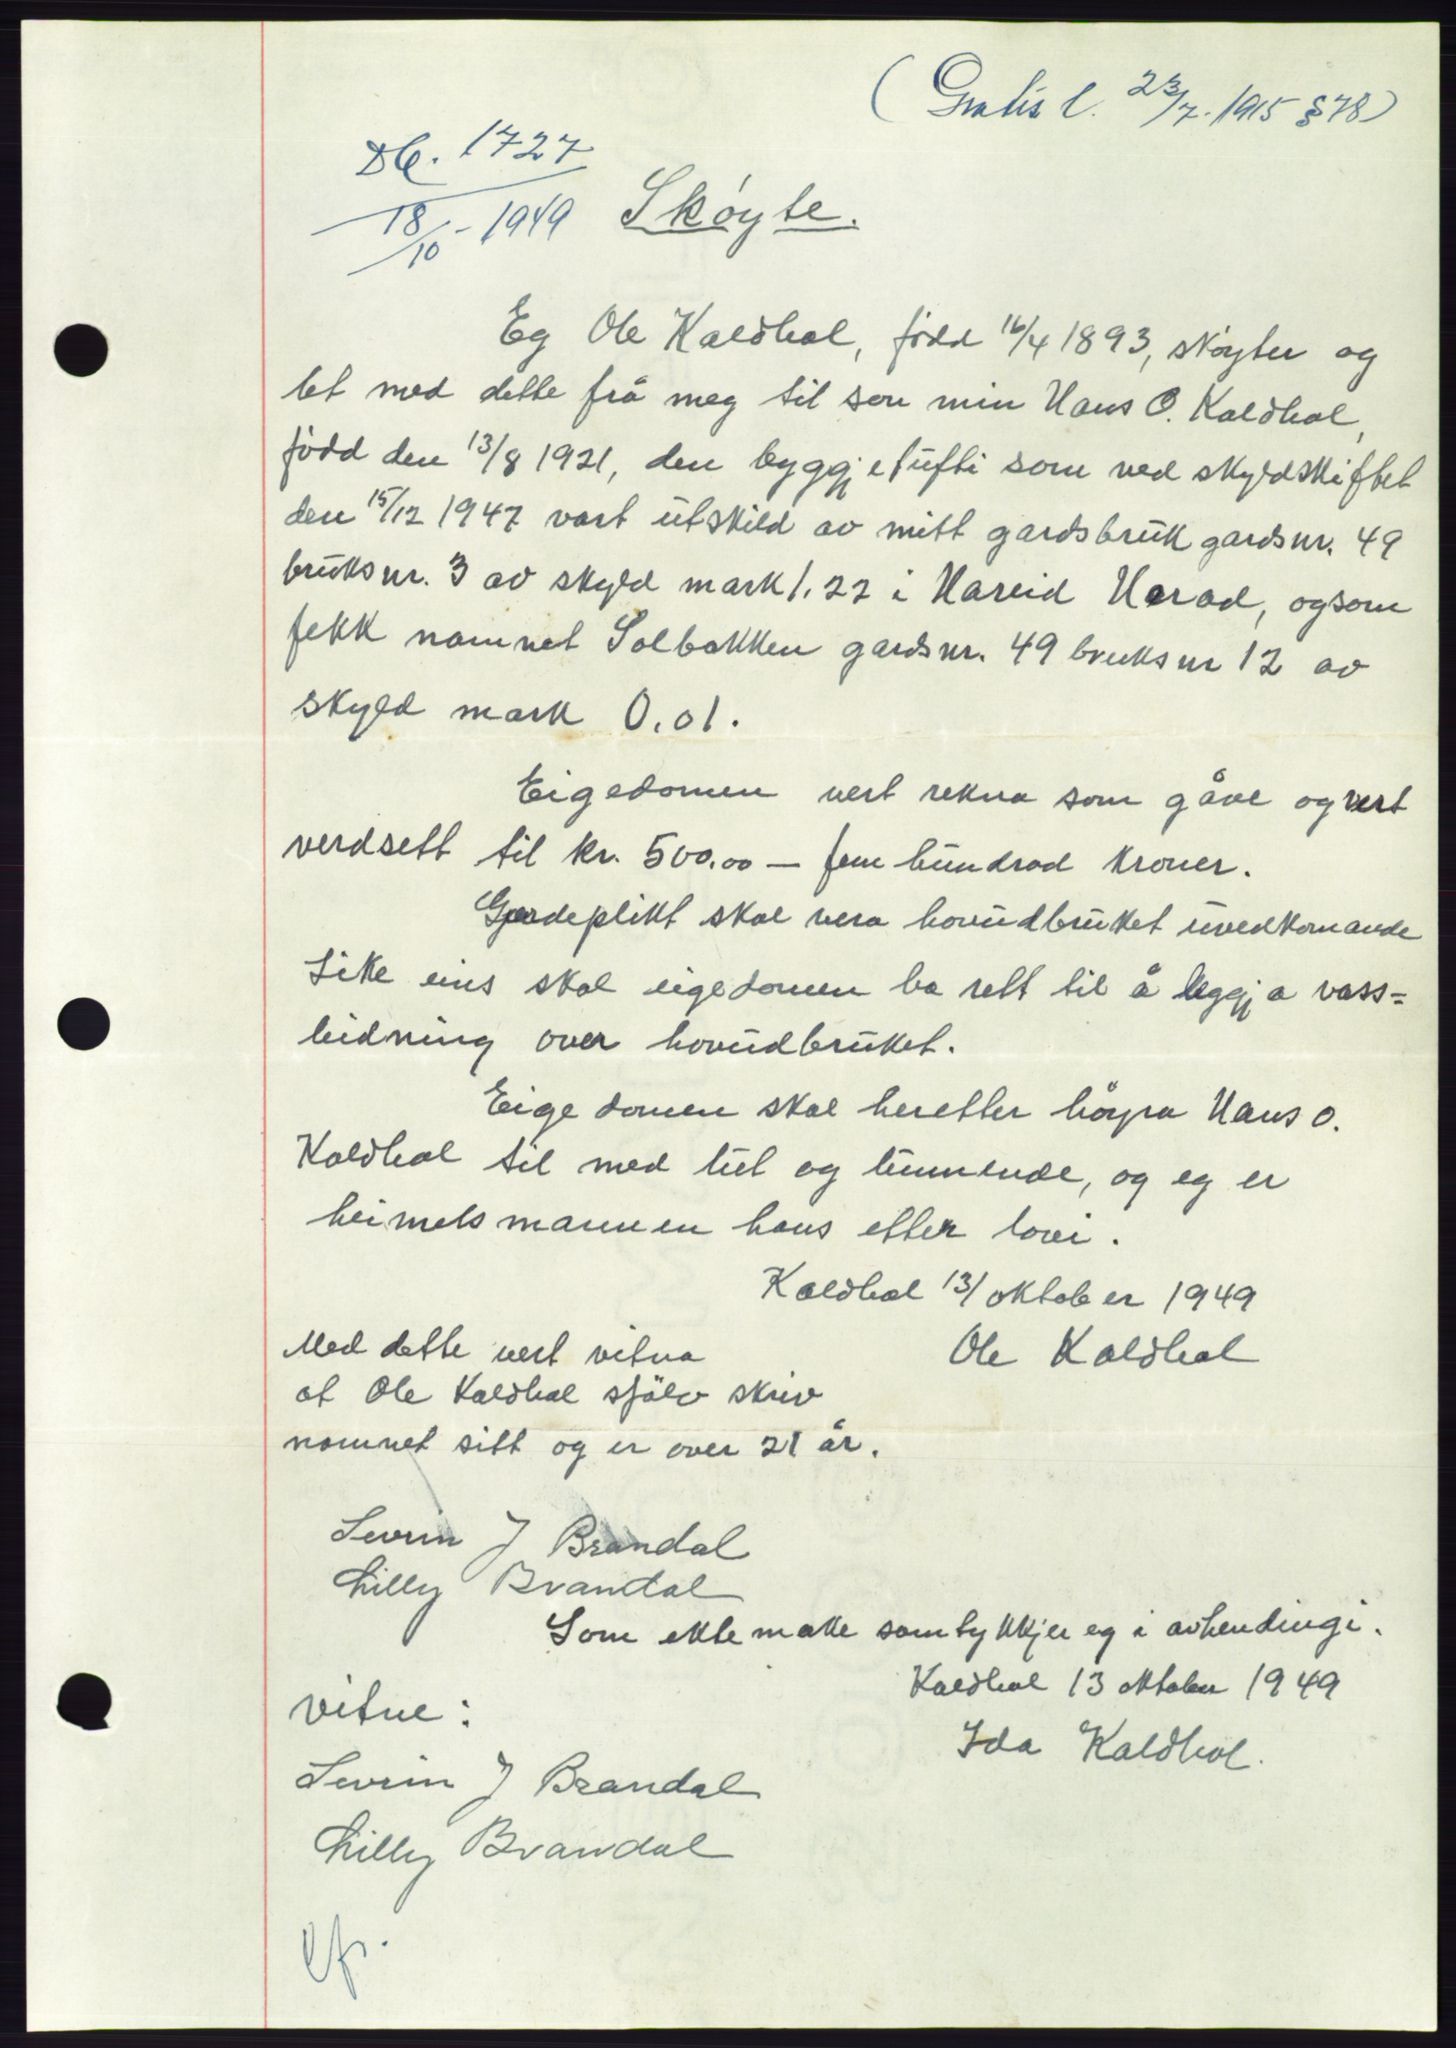 (Gratis l. 23/7. 1915 §78)
Db. 1727
18/10 - 1949 Skøyte.
Eg Ole Kaldhol, född 16/4 1893, skøyter og
let med dette frå meg til son min Hans O. Kaldhol,
född den 13/8 1921, den byggjetufti som ved skyldskiftet
den 15/12 1947 vart utskild av mitt gardsbruk gardsnr. 49
bruksnr. 3 av skyld mark 1.22 i Hareid Herad, og som
fekk namnet Solbakken gardsnr. 49 bruksnr 12 av
skyld mark 0.01.
Eigedomen vert rekna som gåve og vert
verdsett til kr. 500.00 — fem hundrad kroner.
Gjerdeplikt skal vera hovudbruket uvedkomande
Like eins skal eigedomen ha rett til å leggja vass=
leidning over hovudbruket.
Eigedomen skal heretter höyra Hans O.
Kaldhol til med lut og lunnende, og eg er
heimelsmannen hans etter lovi.
Kaldhol 13/ oktober 1949
Ole Kaldhol
Med dette vert vitna
at Ole Kaldhol sjölv skriv
namnet sitt og er over 21 år.
Sevrin J Brandal
Lilly Brandal
Som ektemake samtykkjer eg i avhendingi.
Kaldhol 13 oktober 1949
Ida Kaldhol.
Vitne:
Sevrin J Brandal
Lilly Brandal